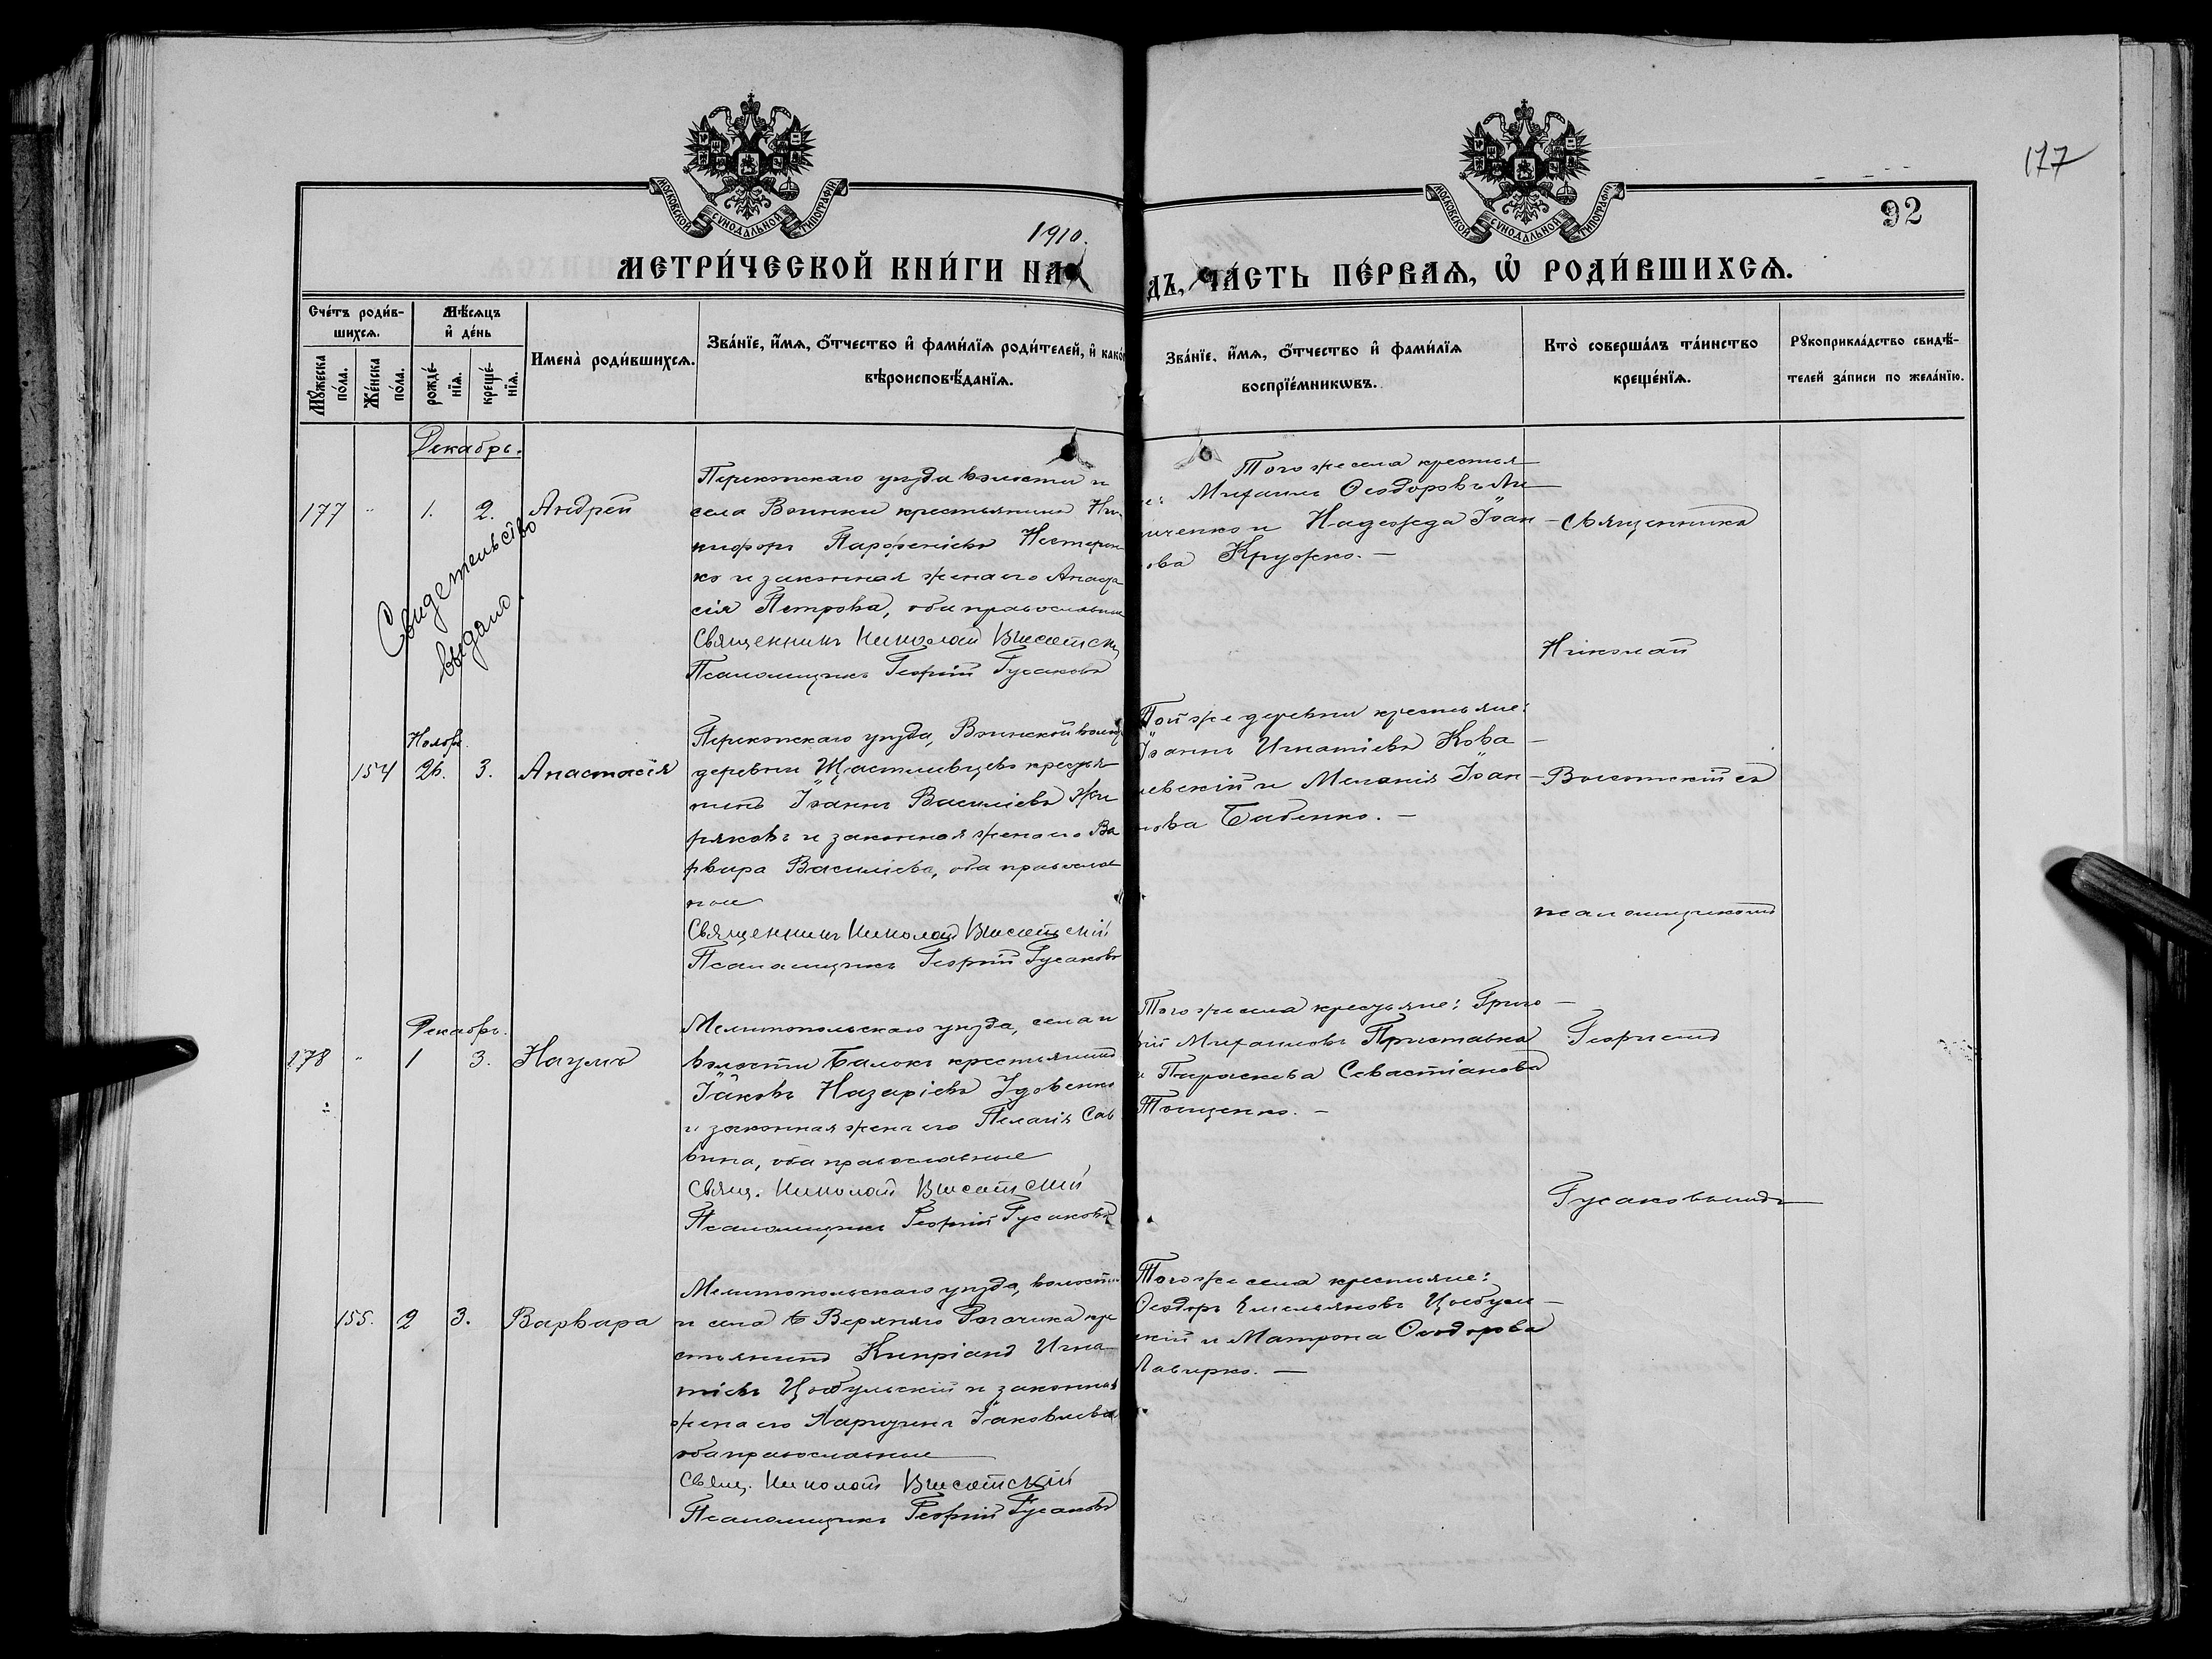 177
92
МОСКОВСКОЙ СУНОДАЛЬНОЙ ТИПОГРАФІИ
МОСКОВСКОЙ СУНОДАЛЬНОЙ ТИПОГРАФІИ
1910.
МЕТРИ́ЧЕСКОЙ КНИ́ГИ НА
ДЪ, ЧА́СТЬ ПЕ́РВАѦ, Ѡ҆ РОДИ́ВШИХСѦ.
Сче́тъ роди́в-
шихсѧ.
Мꙋ́жеска по́ла.
Же́нска по́ла.
Мѣ́сѧцъ
и҆ де́нь
рожде́-
нїѧ.
креще́-
нїѧ.
Имена̀ роди́вшихсѧ.
Зва́нїе, и҆́мѧ, ѻ҆́тчество и҆ фами́лїѧ роди́телей, и҆ како́
вѣроисповѣ́данїѧ.
Зва́нїе, и҆́мѧ, ѻ҆́тчество и҆ фами́лїѧ
воспрїе́мникѡвъ.
Кто̀ соверша́лъ та́инство
креще́нїѧ.
Рꙋкоприкла́дство свидѣ́-
телей за́писи по жела́нїю.
Декабрь.
177 " 1. 2. Андрей
Свидетельство
выдано.
Перекопскаго уѣзда волости и
села Воинки крестьянинъ Ни
кифоръ Парѳеніевъ Нестерен
ко и законная жена его Анаста
сія Петрова, оба православные
Священникъ Николай Высотскі
Псаломщикъ Георгій Гусаковъ
Того же села крестья
е: Михаилъ Ѳеодоровъ
ченко и Надежда Іоан
ова Кружко. —
Священникъ
Николай
Ноябрь.
154 26. 3. Анастасія
Перекопскаго уѣзда, Воинской волос
деревни Щастливцево крестья
нинъ Іоаннъ Василіевъ Жи
ряковъ и законная жена его Ва
рвара Василіева, оба православ
ные
Священникъ Николай Высотскій
Псаломщикъ Георгій Гусаковъ
Той же деревни крестьяне:
Іоаннъ Игнатіевъ Кова
левскій и Меланія Іоан
нова Бабенко. —
Высотскій съ
псаломщикомъ
Декабрь.
178 " 1 3. Наумъ
Мелитопольскаго уѣзда, села и
волости Балокъ крестьянинъ
Іаковъ Назаріевъ Удовенко
и законная жена его Пелагія Сав
вина, оба православные
Свящ. Николай Высотскій
Псаломщикъ Георгій Гусаковъ
Того же села крестьяне: Григо
рій Михаиловъ Приставка
и Параскева Севастіанова
Тищенко. —
Георгіемъ
Гусаковымъ
155. 2 3. Варвара
Мелитопольскаго уѣзда, волости
и села В Верхняго Рогачика кре
стьянинъ Кипріанъ Игна
тіевъ Цыбульскій и законная
жена его Іаковлева,
оба православные
Свящ. Николай Высотскій
Псаломщикъ Георгій Гусаковъ
Того же села крестьяне:
Ѳеодоръ Емельяновъ Цыбуль
скій и Матрона Ѳеодорова
Лавирко. —